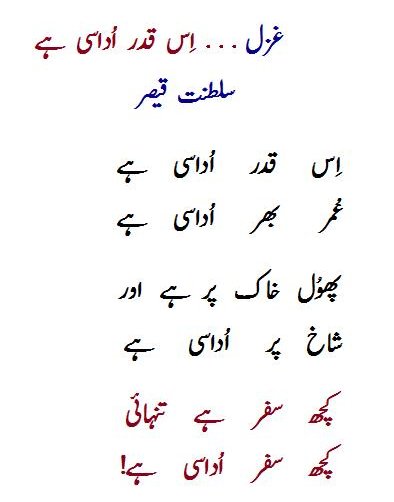 غزل . . . اِس قدر اُداسی ہے
سلطنت قیصر
اِس قدر اُداسی ہے
عُمر بھر اُداسی ہے
پھوُل خاک پر ہے اور
شاخ پر اُداسی ہے
کچھ سفر ہے تنہائی
کچھ سفر اُداسی ہے!